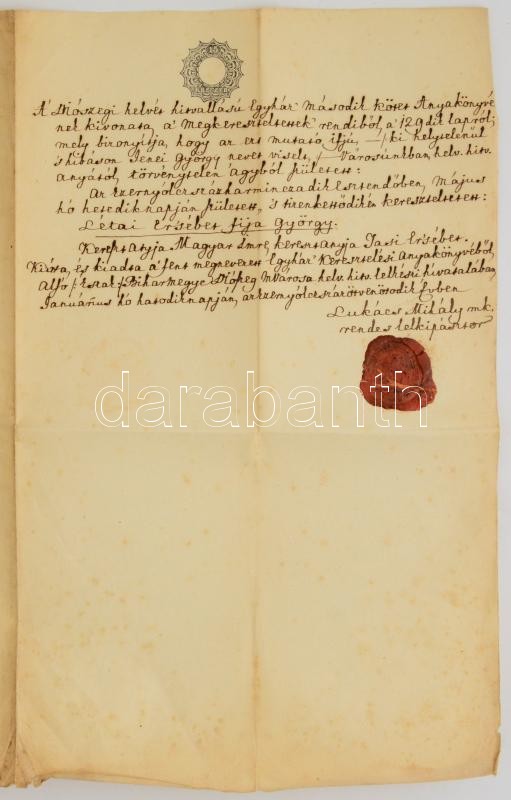 A' Diószegi helvét hitvallású Egyház Második kötet Anyakönyvé
nek kivonata, a' Megkereszteltettek rendiből, a' 129dik lapról,
mely bizonyítja, hogy az ezt mutató ifjú, —/:ki helytelenűl
's hibáson Jenei György nevet viselt, :/— Városúnkban, helv. hitv.
anyától, törvénytelen ágyból született:
Az Ezernyólczszázharminczadik Esztendőben, Május
hó hetedik napján született, 's tizenkettődikén kereszteltetett:
Létai Ersébet fija György.
Keresztatyja Magyar Imre, keresztanyja Tasi Ersébet.
Kiírta, és kiadta a' fent megnevezett Egyház Keresztelési Anyakönyvéből,
Alsó /:Észak:/ Bihar megye Diószeg MVárosa helv. hitv. lelkészi hivatalában,
Januárius hó hatodik napján, az ezernyólczszázötvenötödik Évben
Lukács Mihály mk.
rendes lelkipásztor
darabanth